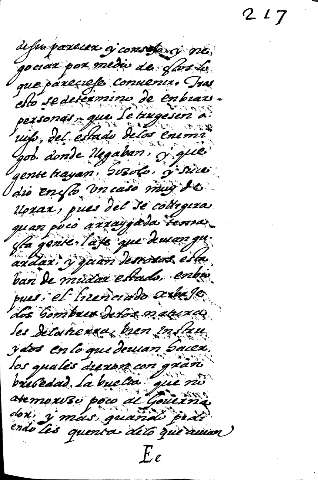 217
de su parecer y consejo y ne
gociar por medio de ellos lo
que pareciese convenir. Tras
esto se determino de enbiar
personas que le truxesen a
viso, del estado de los enemi
gos, donde llegaban, y que
gente trayan, hizolo, y suce
dio en esto un caso muy de
llorar, pues del se colegira
quan poco arraygada tenia
esta gente, la fe que devian gu
ardar, y quan deseosos esta
ban de mudar estado, enbio
pues, el licenciado
dos hombres de los natura
les de la tierra, bien instru
ydos en lo que devian hacer,
los quales dieron con gran
brebedad, la buelta que no
atemorizo poco al Governa
dor, y mas quando pidi
endo les quenta de lo que avian
Ee